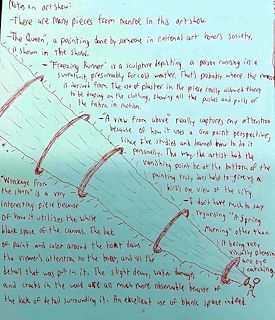 Notes on art show:
-There are many pieces from monroe in this art show
-"The Queen", a painting done by someone in national art honors society,
is shown in the show.
-"Freezing Runner" is a sculpture depicting a person running in a
sweatsuit, presumably for cold weather. That's probably where the name
is derived from. The use of plaster in the piece really allowed there
to be draping on the clothing, showing all the pushes and pulls of
the fabric in motion.
-"A view from above" really captures my attention
because of how it uses a one point perspective,
since I've studies and learned how to do it
personally. The way the artist had the
vanishing point be at the bottom of the
painting truly does help to giving a
bird's eye view of the city.
-"Wreckage from
the storm" is a very
interesting piece because
of how it utilizes the white
blank space of the canvas. The lack
of paint and color around the boat draws
the viewer's attention to the boat, and all the
detail that was put in it. The slight decay, water damages
and cracks in the wood are all much more observable because of
the lack of detail surrounding it. An excellent use of blank space indeed.
-I don't have much to say
regarding "A Spring
Morning" other than
it being very
visually pleasing
and eye
catching.